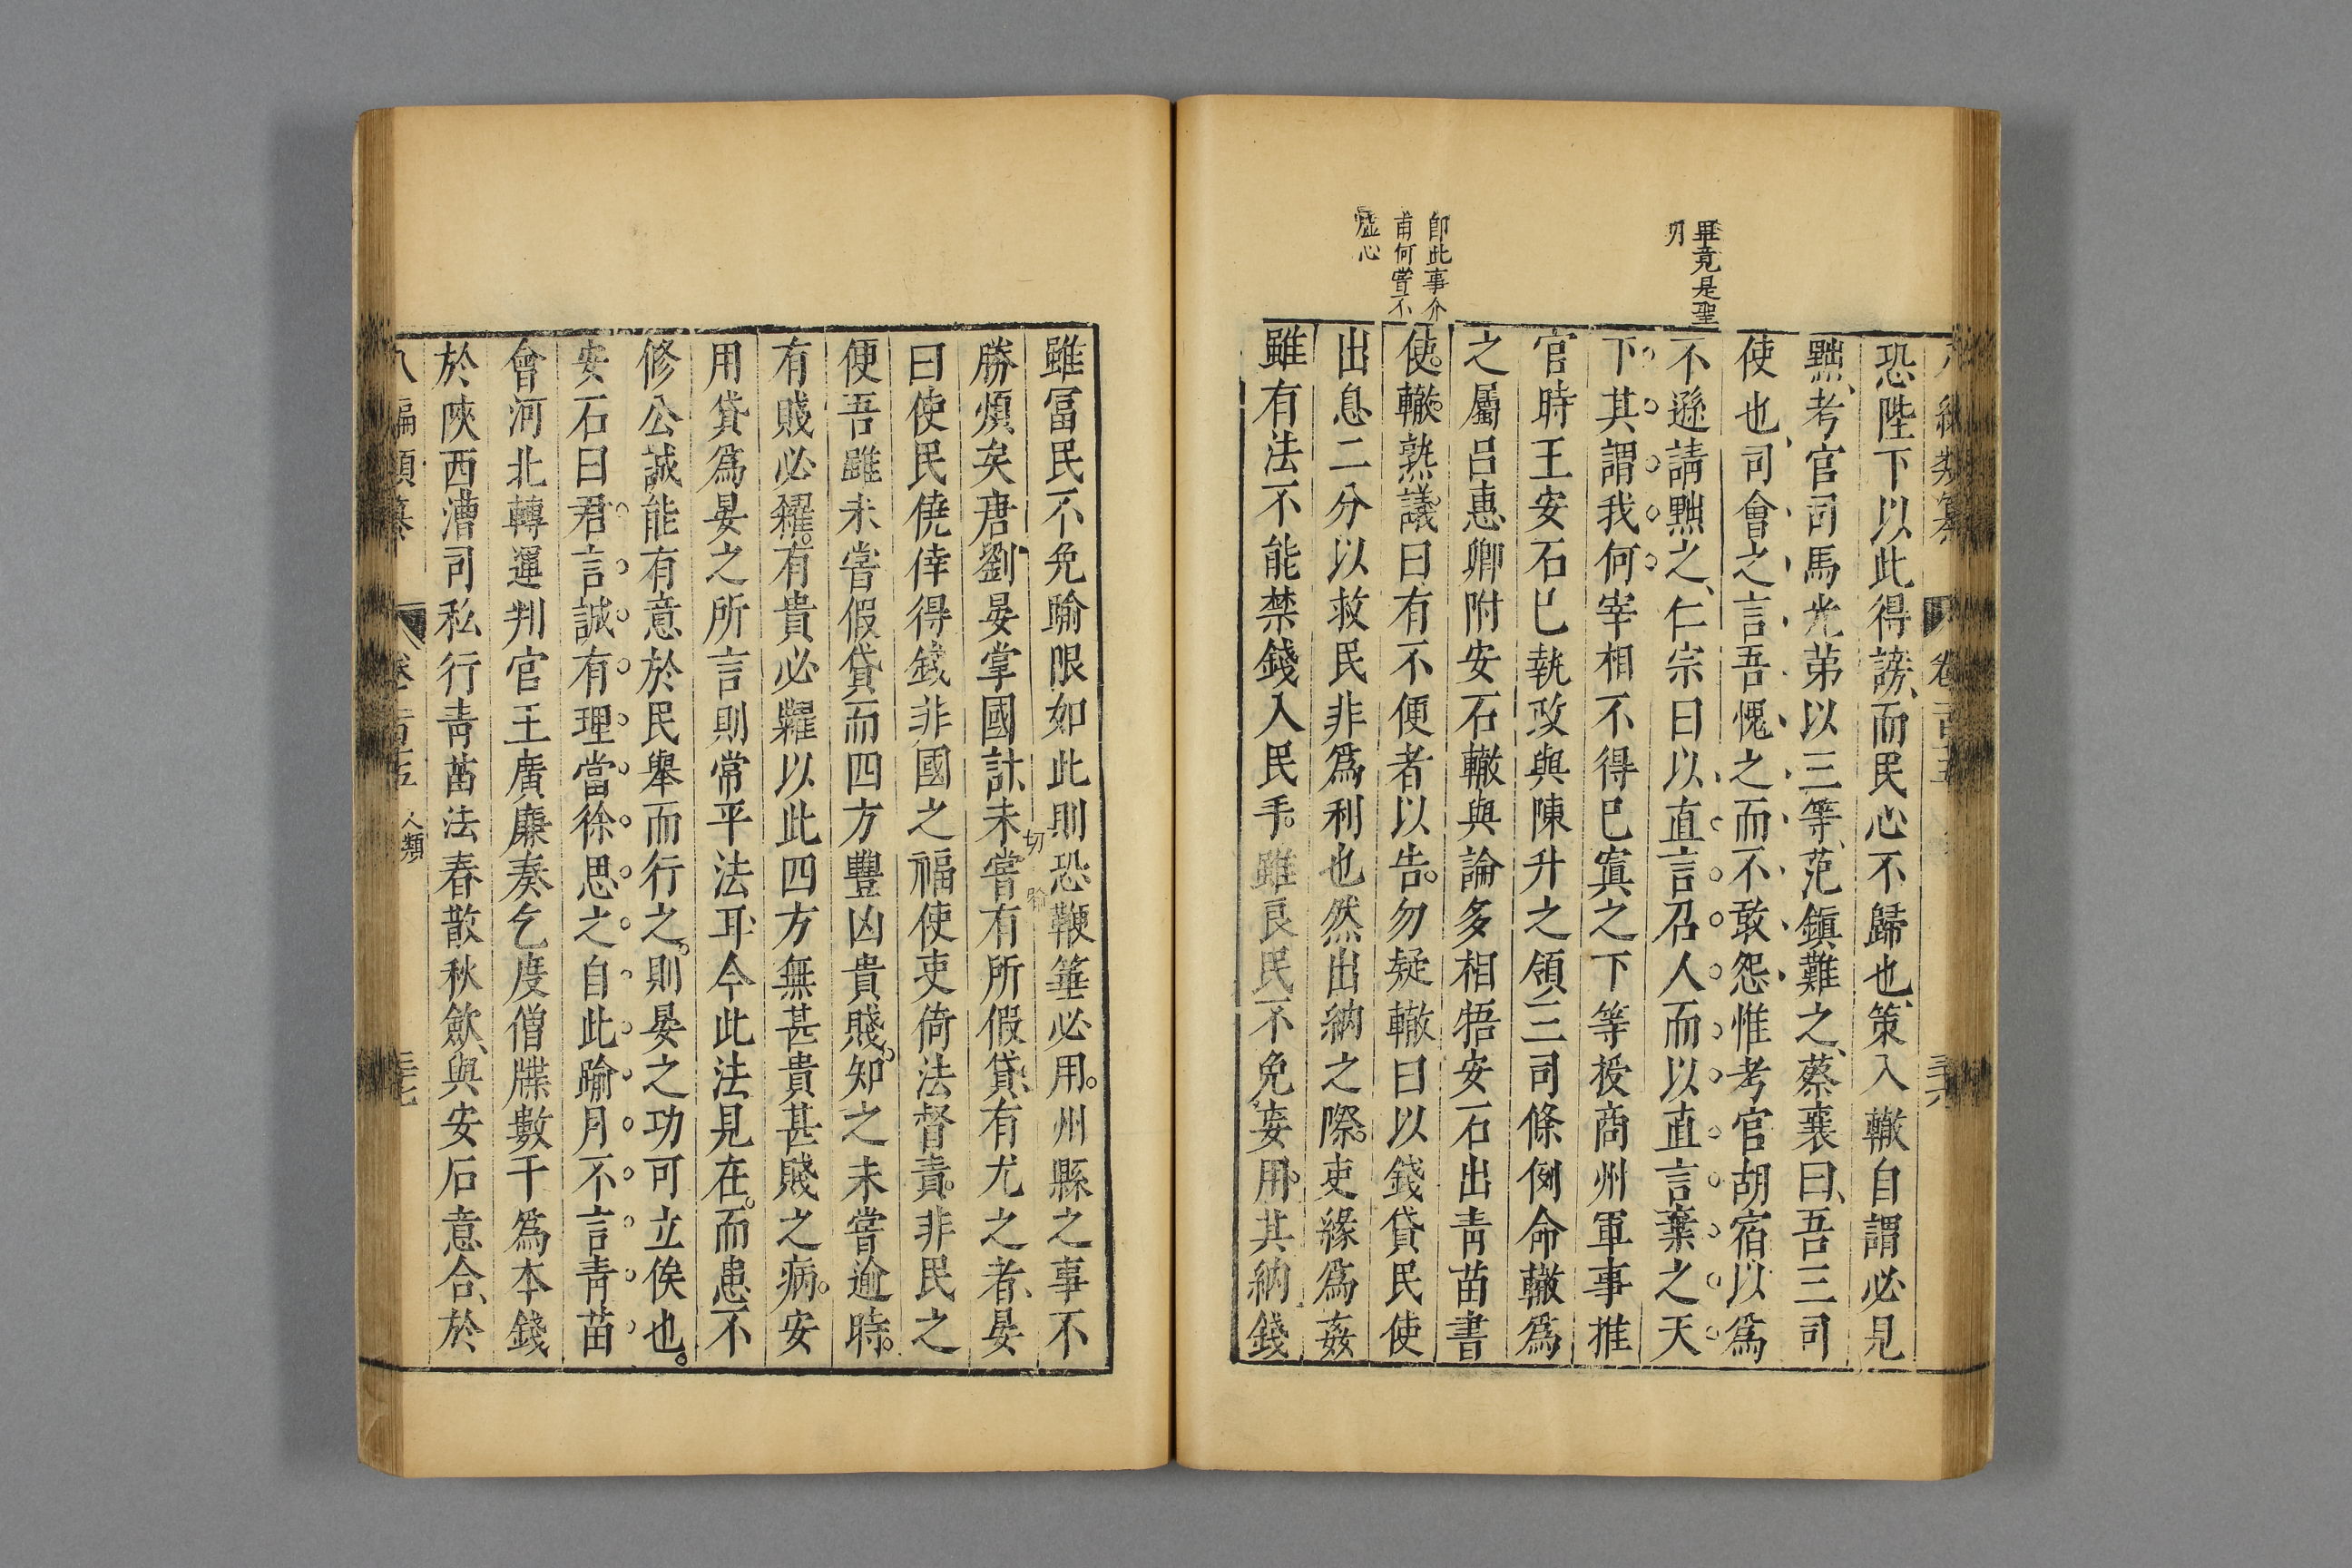 恐陛下以此得謗、而民心不歸也、策入轍自謂必見
黜、考官司馬光第以三等、范鎮難之、蔡襄曰、吾三司
使也、司會之言吾愧之而不敢怨惟考官胡宿以為
不遜請黜之、仁宗曰以直言召人而以直言棄之天
下其謂我何宰相不得已寘之下等授商州軍事推
官時王安石已執政與陳升之領三司條例命轍為
之屬呂惠卿附安石轍與論多相牾安石出青苗書
使轍熟議曰有不便者以告勿疑轍曰以錢貸民使
出息二分以救民非為利也然出納之際吏緣為姦
雖有法不能禁錢入民手雖良民不免妄用其納錢
畢竟是聖
明
即此事介
甫何嘗不
虛心
雖冨民不免踰限如此則恐鞭箠必用州縣之事不
勝煩矣唐劉晏掌國計未嘗有所假貸有尤之者、晏
曰使民僥倖得錢非國之福使吏倚法督責非民之
便吾雖未嘗假貸而四方豐凶貴賤知之未嘗逾時
有賤必糴有貴必糶以此四方無甚貴甚賤之病安
用貸為晏之所言則常平法耳今此法見在而患不
修公誠能有意於民舉而行之則晏之功可立俟也
安石曰君言誠有理當徐思之自此踰月不言青苗
會河北轉運判官王廣廉奏乞度僧牒數千為本錢
於陝西漕司私行青苗法春散秋歛、與安石意合、於
切
八編類纂 卷一百五 人類 三七